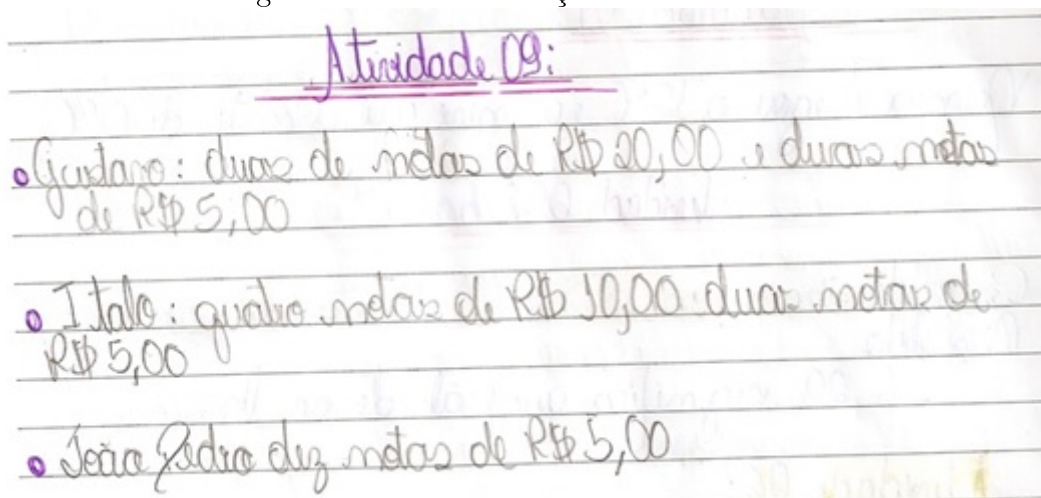 Atividade 09:
• Gustavo: duas de notas de R$ 20,00 e duas notas
de R$ 5,00
• Italo: quatro notas de R$ 10,00 duas notas de
R$ 5,00
• João Pedro dez notas de R$ 5,00